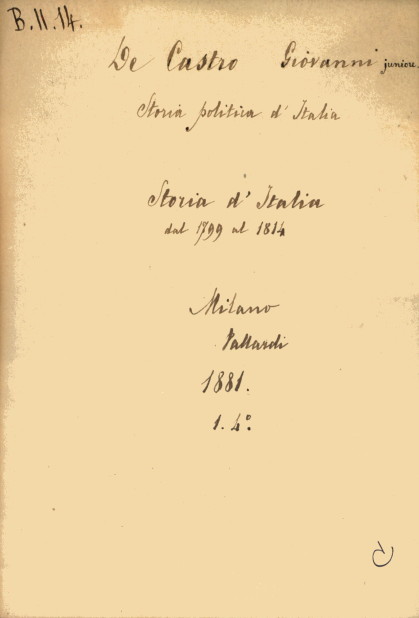 B.II.14.
De Castro Giovanni juniore.
Storia politica d'Italia
Storia d'Italia
dal 1799 al 1814
Milano
Vallardi
1881.
1. 4º.